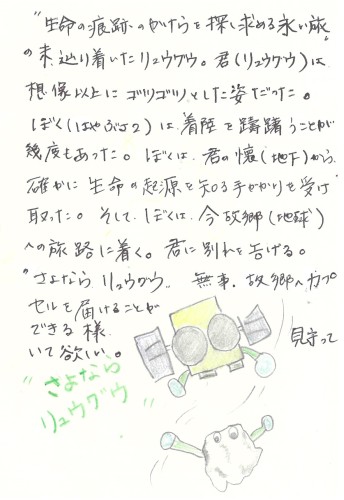 "生命の痕跡のかけらを探し求める永い旅"
の末辿り着いたリュウグウ。君(リュウグウ)は
想像以上にゴツゴツとした姿だった。
ぼく(はやぶさ2)は着陸を躊躇うことが
幾度もあった。ぼくは、君の懐(地下)から
確かに生命の起源を知る手がかりを受け
取った。そして、ぼくは今故郷(地球)
への旅路に着く。君に別れを告げる。
"さよならリュウグウ" 無事、故郷へカプ
セルを届けることが
できる様 見守って
いて欲しい。
"さよなら
リュウグウ"